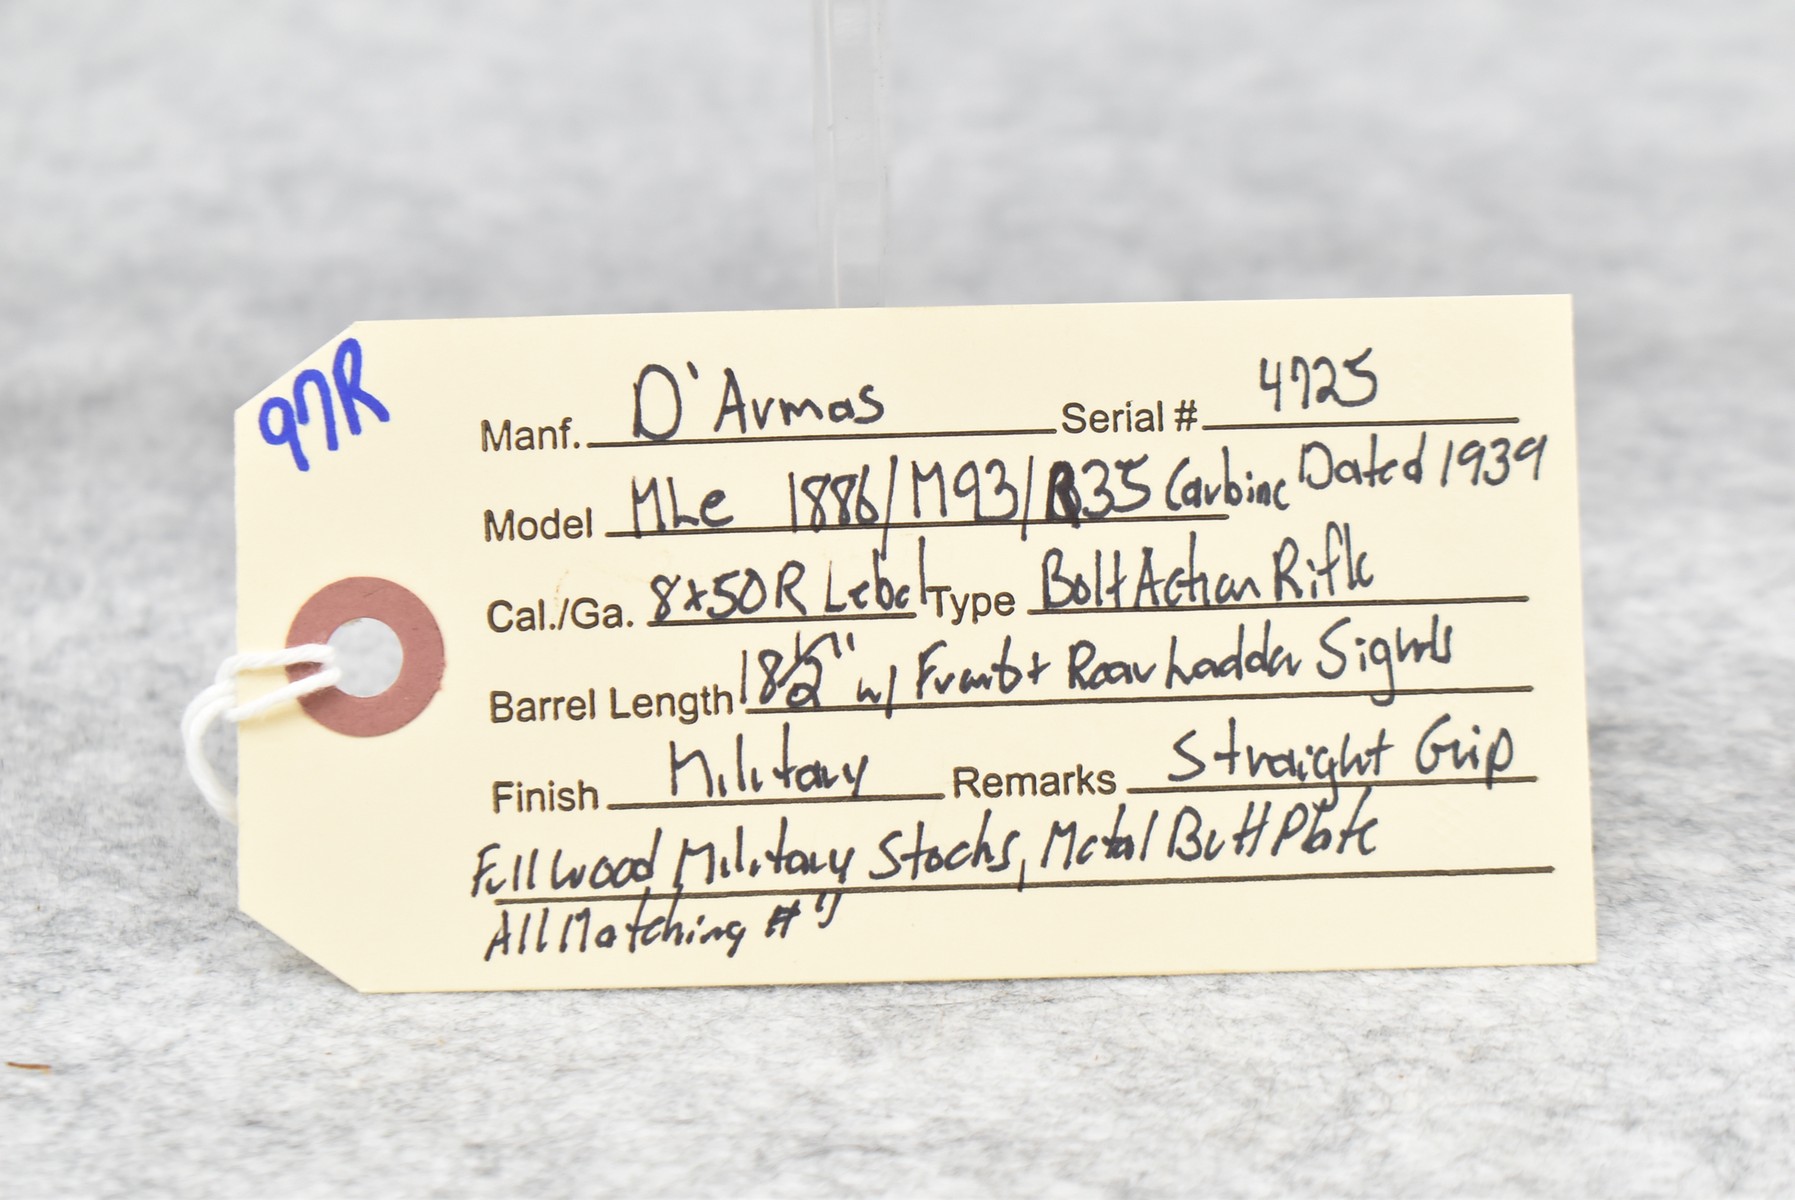 97R
Manf. D'Armas Serial # 4725
Model MLe 1886/M93/R35 Carbine Dated 1939
Cal./Ga. 8x50R Lebel Type Bolt Action Rifle
Barrel Length 18½" w/ Front + Rear Ladder Sights
Finish Military Remarks Straight Grip
Full Wood Military Stocks, Metal Butt Plate
All Matching #'s